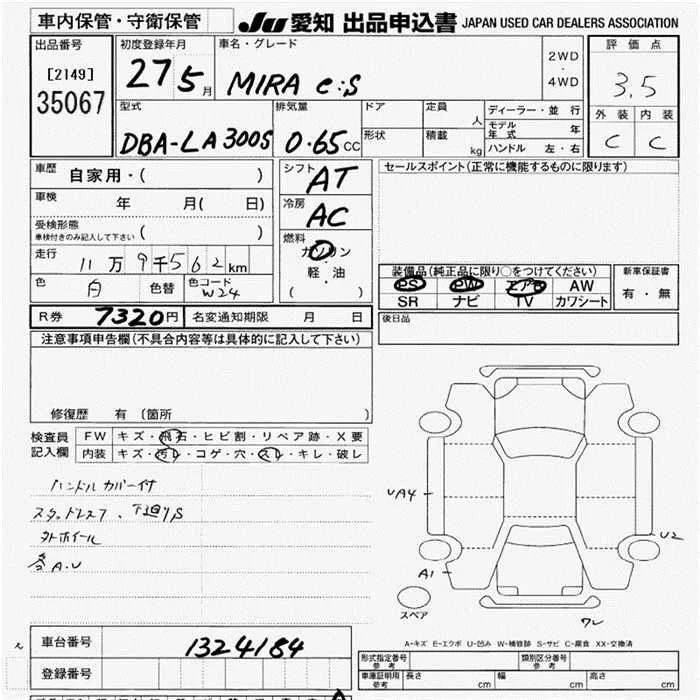 車内保管・守衛保管 JU 愛知 出品申込書 JAPAN USED CAR DEALERS ASSOCIATION
出品番号 初度登録年月 車名・グレード 2WD・4WD 評価点
[2149] 35067 27 5月 MIRA e:S 3.5
型式 排気量 ドア 定員 人 ディーラー・並行 外装 内装
DBA-LA300S 0.65cc 形状 積載 kg モデル年式 年 C C
ハンドル 左・右
車歴 自家用・( ) シフト AT セールスポイント(正常に機能するものに限ります)
車検 年 月( 日) 冷房 AC
受検形態 ( )
車検付きのみ記入して下さい
燃料 ガソリン
軽・油
( )
走行 11万9千562km
色 白 色替 色コード W24
装備品(純正品に限り○をつけてください) 新車保証書
PS PW エアB AW 有・無
SR ナビ TV カワシート
R券 7320円 名変通知期限 月 日 後日品
注意事項申告欄(不具合内容等は具体的に記入して下さい)
修復歴 有 〔箇所 〕
検査員記入欄 FW キズ・飛石・ヒビ割・リペア跡・X要
内装 キズ・汚レ・コゲ・穴・スレ・キレ・破レ
ハンドルカバー付
スタッドレス7、下廻りS
外ホイール
各A.U
UA4
U2
A1
スペア
ワレ
A-キズ E-エクボ U-凹み W-補修跡 S-サビ C-腐食 XX-交換済
車台番号 1324184
登録番号
形式指定番号 参考 類別区分番号 参考
車庫証明用 参考 長さ cm 幅 cm 高さ cm